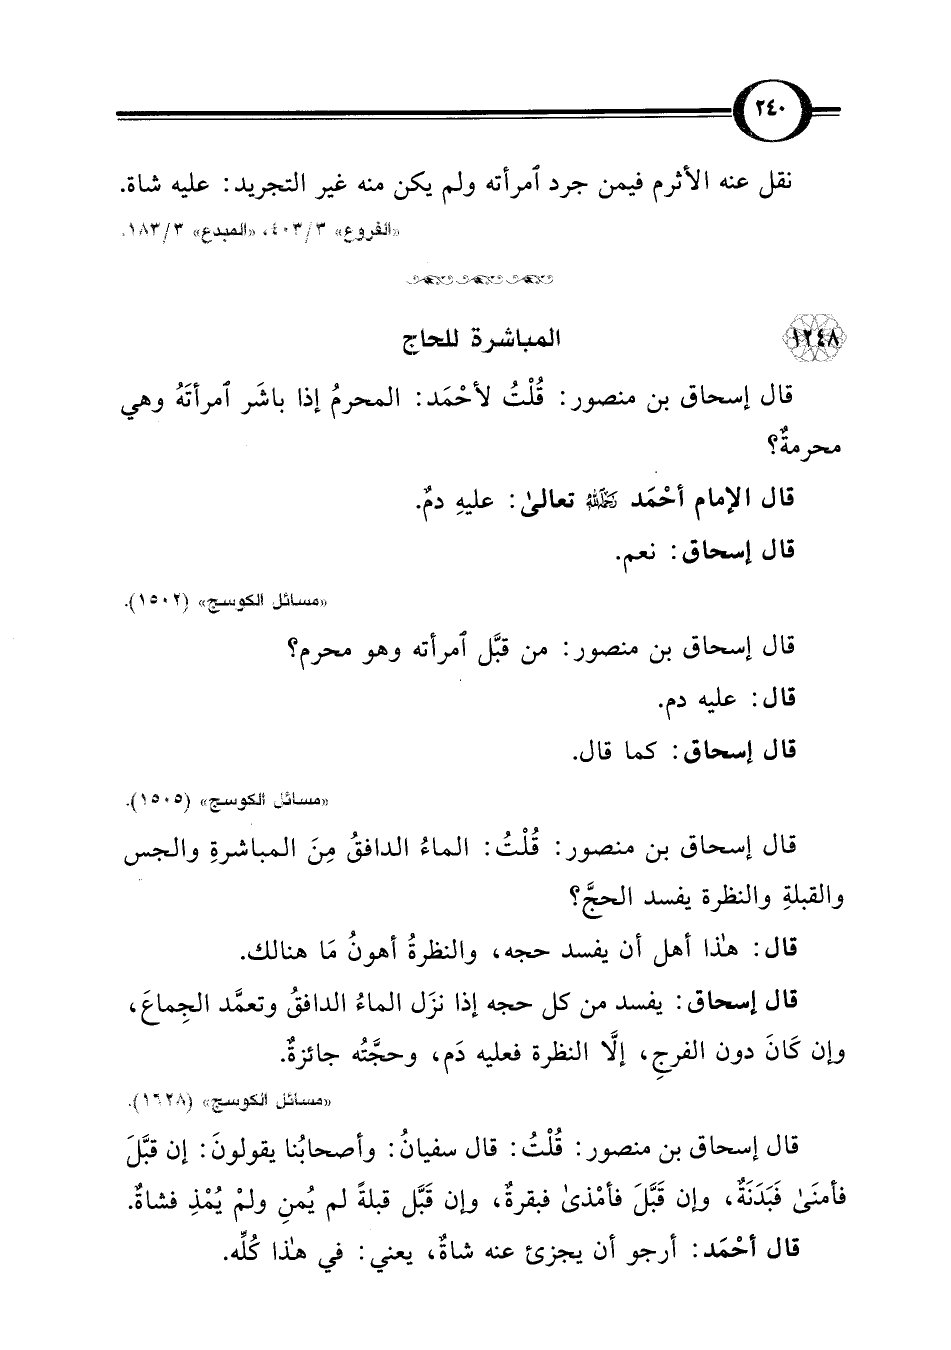 ٢٤٠
نقل عنه الأثرم فيمن جرد ٱمرأته ولم يكن منه غير التجريد: عليه شاة.
«الفروع» ٤٠٣/٣، «المبدع» ١٨٣/٣.
١٢٤٨ المباشرة للحاج
قال إسحاق بن منصور: قُلْتُ لأحْمَد: المحرمُ إذا باشَر ٱمرأتَهُ وهي
محرمةٌ؟
قال الإمام أحْمَد رَحِمَهُ اللهُ تعالىٰ: عليهِ دمٌ.
قال إسحاق: نعم.
«مسائل الكوسج» (١٥٠٢).
قال إسحاق بن منصور: من قبَّل ٱمرأته وهو محرم؟
قال: عليه دم.
قال إسحاق: كما قال.
«مسائل الكوسج» (١٥٠٥).
قال إسحاق بن منصور: قُلْتُ: الماءُ الدافقُ مِنَ المباشرةِ والجس
والقبلةِ والنظرة يفسد الحجَّ؟
قال: هٰذا أهل أن يفسد حجه، والنظرةُ أهونُ مَا هنالك.
قال إسحاق: يفسد من كل حجه إذا نزَل الماءُ الدافقُ وتعمَّد الجِماعَ،
وإن كَانَ دون الفرجِ، إلَّا النظرة فعليه دَم، وحجَّتُه جائزةٌ.
«مسائل الكوسج» (١٦٢٨).
قال إسحاق بن منصور: قُلْتُ: قال سفيانُ: وأصحابُنا يقولونَ: إن قبَّلَ
فأمنَىٰ فَبَدَنَةٌ، وإن قَبَّلَ فأمْذىٰ فبقرةٌ، وإن قَبَّل قبلةً لم يُمنِ ولمْ يُمْذِ فشاةٌ.
قال أحْمَد: أرجو أن يجزئ عنه شاةٌ، يعني: في هٰذا كُلِّه.